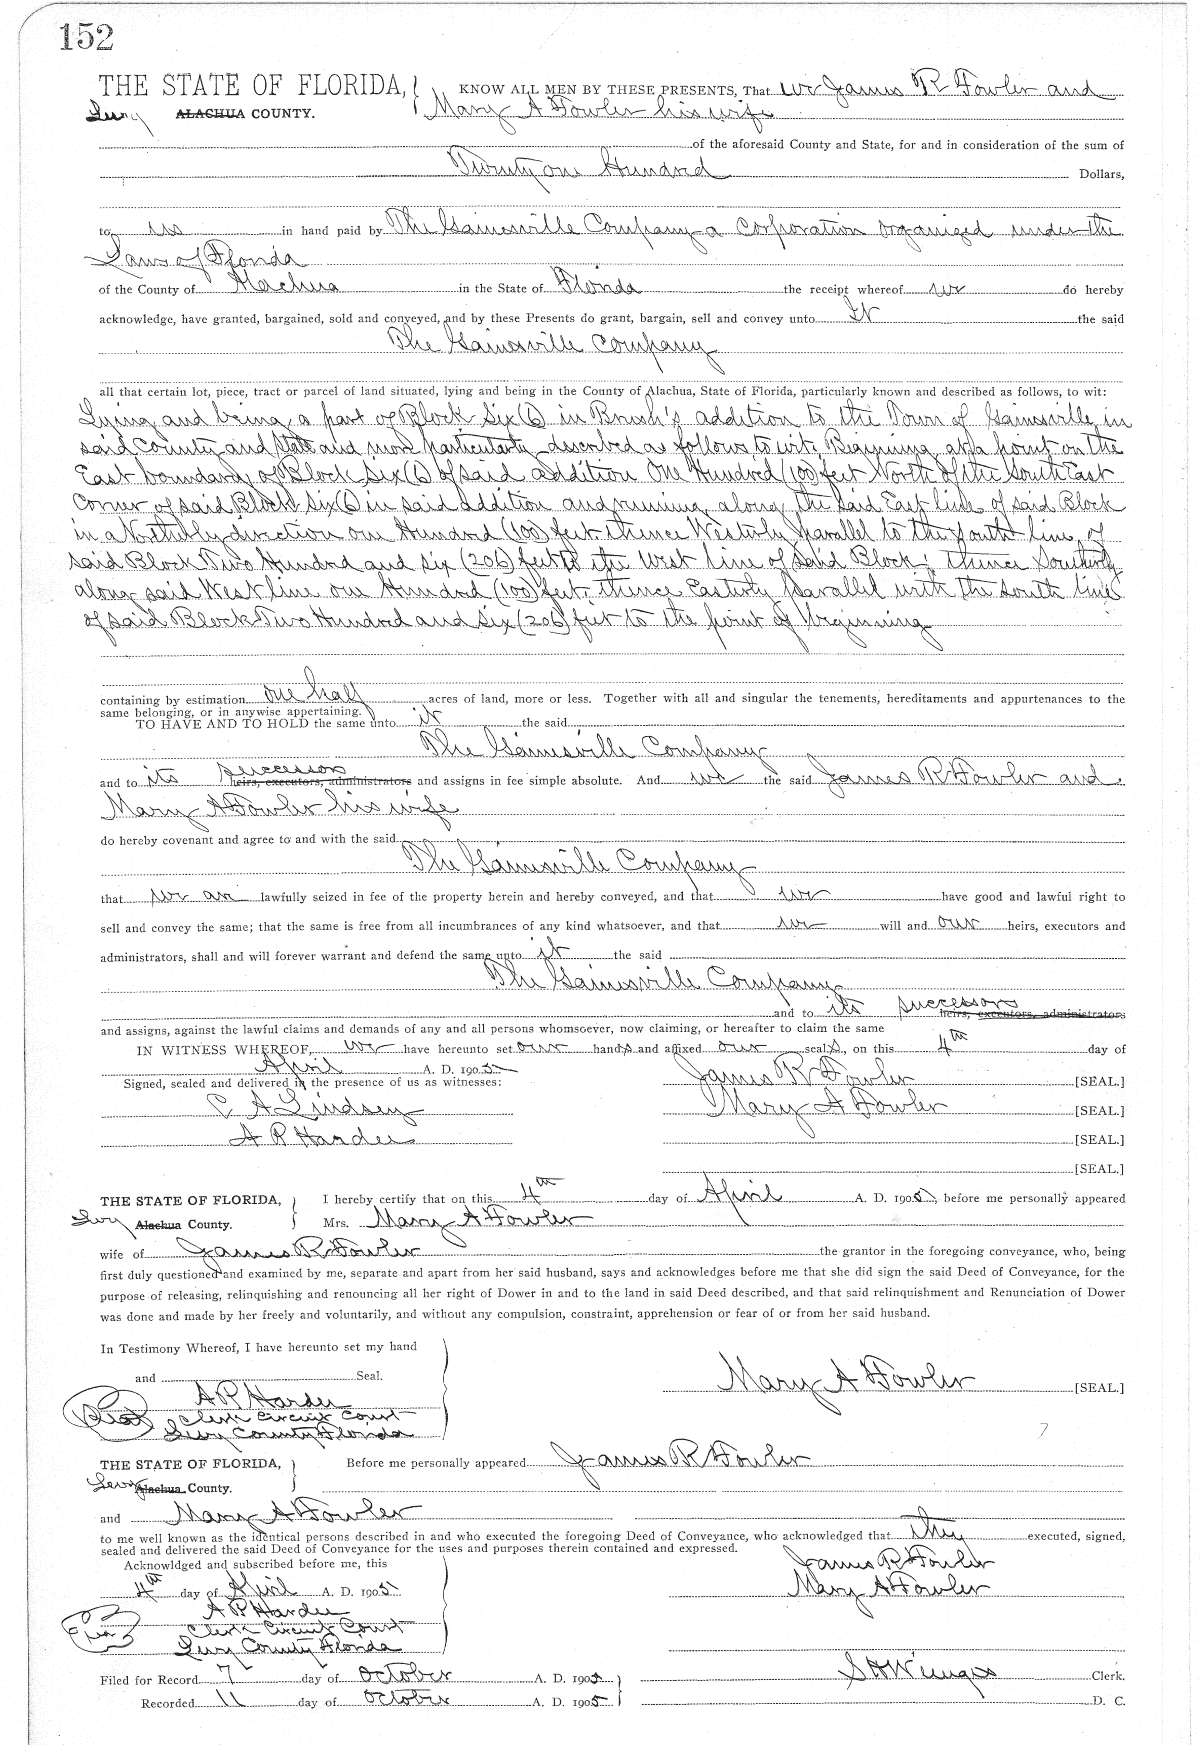 152
THE STATE OF FLORIDA, KNOW ALL MEN BY THESE PRESENTS, That we James R Fowler and
Levy ALACHUA COUNTY. Mary A Fowler his wife
of the aforesaid County and State, for and in consideration of the sum of
Twenty one Hundred Dollars,
to us in hand paid by The Gainesville Company a corporation organized under the
Laws of Florida
of the County of Alachua in the State of Florida the receipt whereof we do hereby
acknowledge, have granted, bargained, sold and conveyed, and by these Presents do grant, bargain, sell and convey unto It the said
The Gainesville Company
all that certain lot, piece, tract or parcel of land situated, lying and being in the County of Alachua, State of Florida, particularly known and described as follows, to wit:
Lying and being a part of Block Six (6) in Brush's addition to the Town of Gainesville, in
said County and State and more particularly described as follows to wit, Beginning at a point on the
East boundary of Block Six (6) of said addition One Hundred (100) feet North of the South East
Corner of said Block Six (6) in said addition and running along the said East line of said Block
in a Northerly direction one Hundred (100) feet, thence Westerly parallel to the south line of
said Block Two Hundred and six (206) feet to the West line of said Block; thence Southerly
along said West line one Hundred (100) feet, thence Easterly parallel with the south line
of said Block Two Hundred and six (206) feet to the point of beginning
containing by estimation one half acres of land, more or less. Together with all and singular the tenements, hereditaments and appurtenances to the
same belonging, or in anywise appertaining.
TO HAVE AND TO HOLD the same unto it the said
The Gainesville Company
and to its successors heirs, executors, administrators and assigns in fee simple absolute. And we the said James R Fowler and
Mary A Fowler his wife
do hereby covenant and agree to and with the said
The Gainesville Company
that we are lawfully seized in fee of the property herein and hereby conveyed, and that we have good and lawful right to
sell and convey the same; that the same is free from all incumbrances of any kind whatsoever, and that we will and our heirs, executors and
administrators, shall and will forever warrant and defend the same unto it the said
The Gainesville Company
and to its successors heirs, executors, administrators
and assigns, against the lawful claims and demands of any and all persons whomsoever, now claiming, or hereafter to claim the same
IN WITNESS WHEREOF, we have hereunto set our hands and affixed our seals, on this 4th day of
April A. D. 1905
Signed, sealed and delivered in the presence of us as witnesses: James R Fowler [SEAL.]
C A Lindsey Mary A Fowler [SEAL.]
A P Hardee [SEAL.]
[SEAL.]
THE STATE OF FLORIDA, I hereby certify that on this 4th day of April A. D. 1905, before me personally appeared
Levy Alachua County. Mrs. Mary A Fowler
wife of James R Fowler the grantor in the foregoing conveyance, who, being
first duly questioned and examined by me, separate and apart from her said husband, says and acknowledges before me that she did sign the said Deed of Conveyance, for the
purpose of releasing, relinquishing and renouncing all her right of Dower in and to the land in said Deed described, and that said relinquishment and Renunciation of Dower
was done and made by her freely and voluntarily, and without any compulsion, constraint, apprehension or fear of or from her said husband.
In Testimony Whereof, I have hereunto set my hand
and Seal.
A P Hardee Mary A Fowler [SEAL.]
Seal Clerk Circuit Court
Levy County Florida
THE STATE OF FLORIDA, Before me personally appeared James R Fowler
Levy Alachua County.
and Mary A Fowler
to me well known as the identical persons described in and who executed the foregoing Deed of Conveyance, who acknowledged that they executed, signed,
sealed and delivered the said Deed of Conveyance for the uses and purposes therein contained and expressed.
Acknowldged and subscribed before me, this James R Fowler
4th day of April A. D. 1905 Mary A Fowler
A P Hardee
Seal Clerk Circuit Court
Levy County Florida
Filed for Record 7 day of October A. D. 1905 Clerk.
Recorded 11 day of October A. D. 1905 D. C.